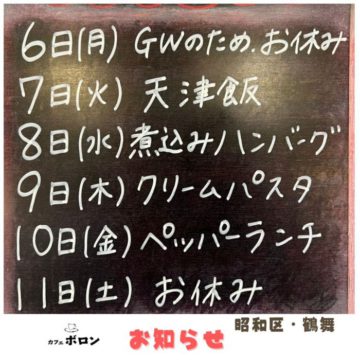 6日(月) GWのため.お休み
7日(火) 天津飯
8日(水)煮込みハンバーグ
9日(木) クリームパスタ
10日(金) ペッパーランチ
11日(土) お休み
カフェ ボロン
お知らせ
昭和区・鶴舞